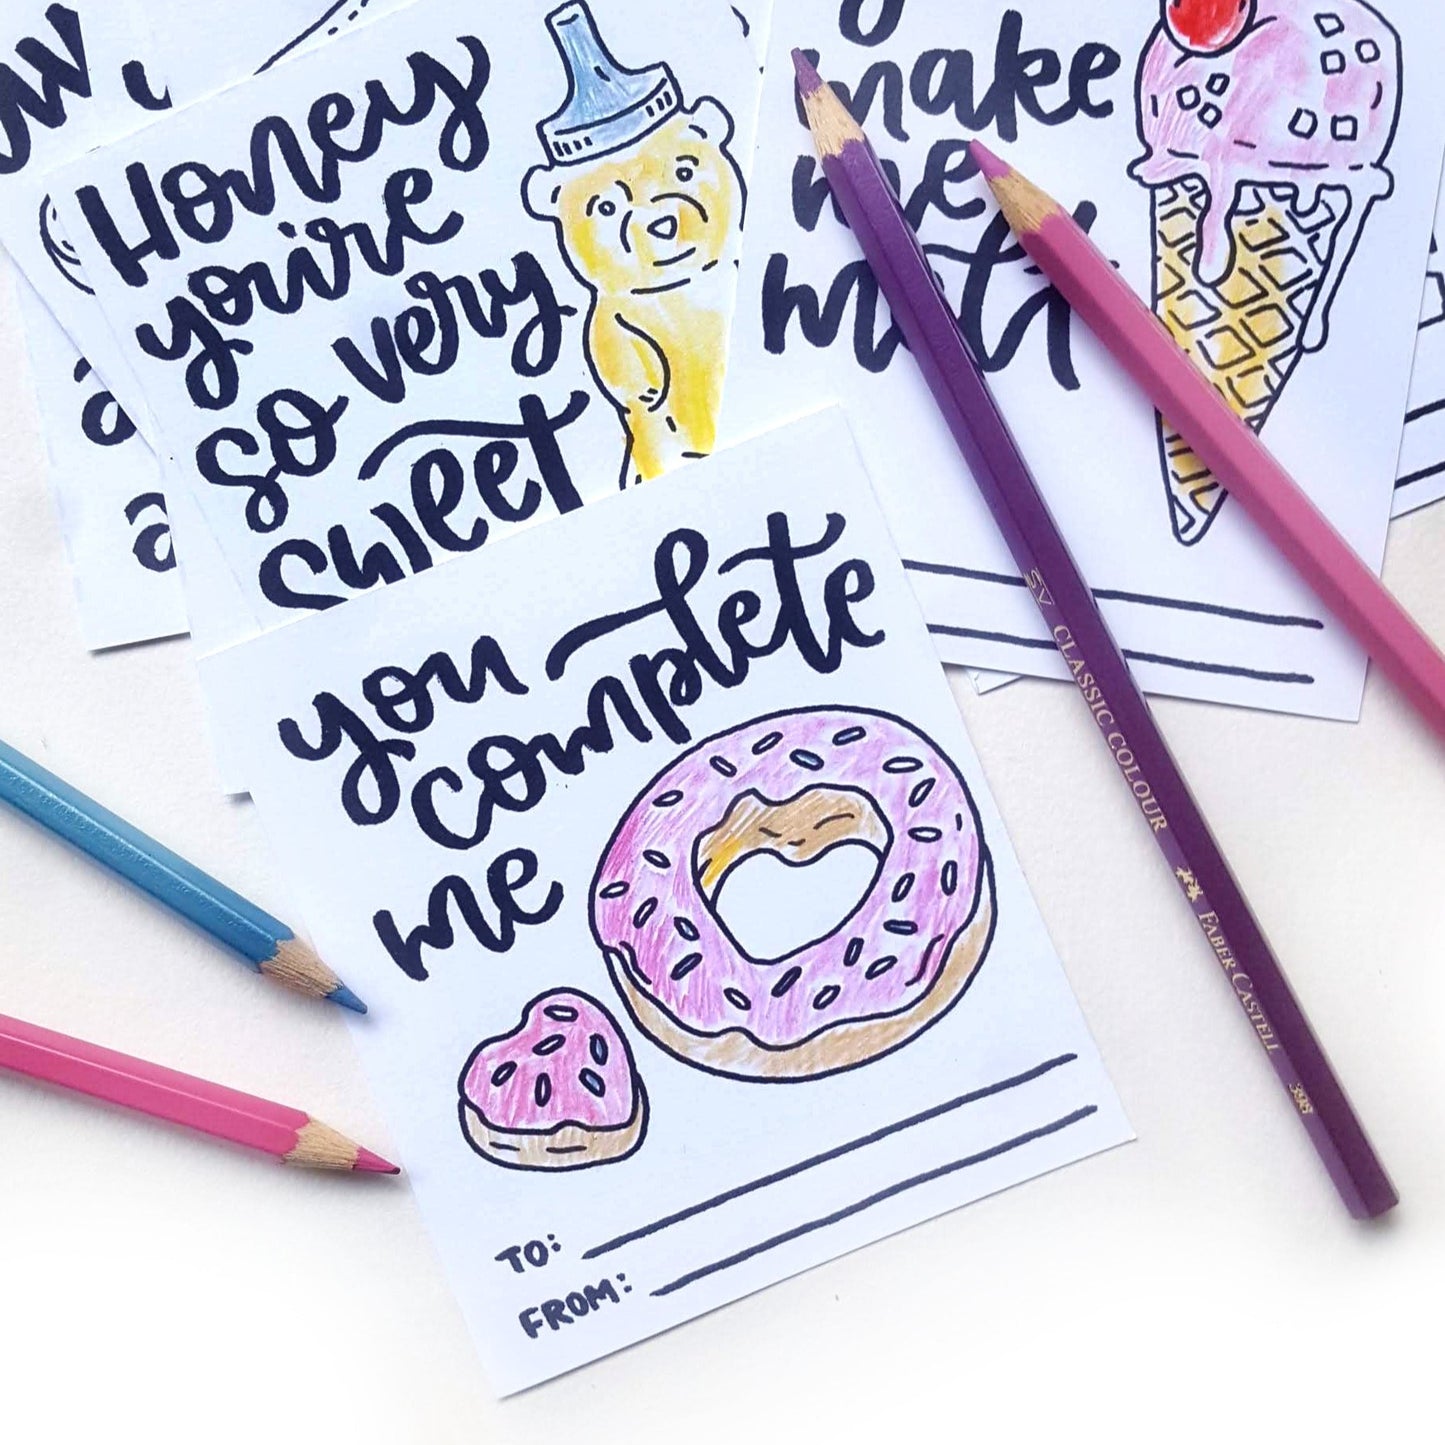 Honey
you're
so very
sweet
make
me
melt
you
complete
me
TO:
FROM:
SV CLASSIC COLOUR FABER CASTELL 398